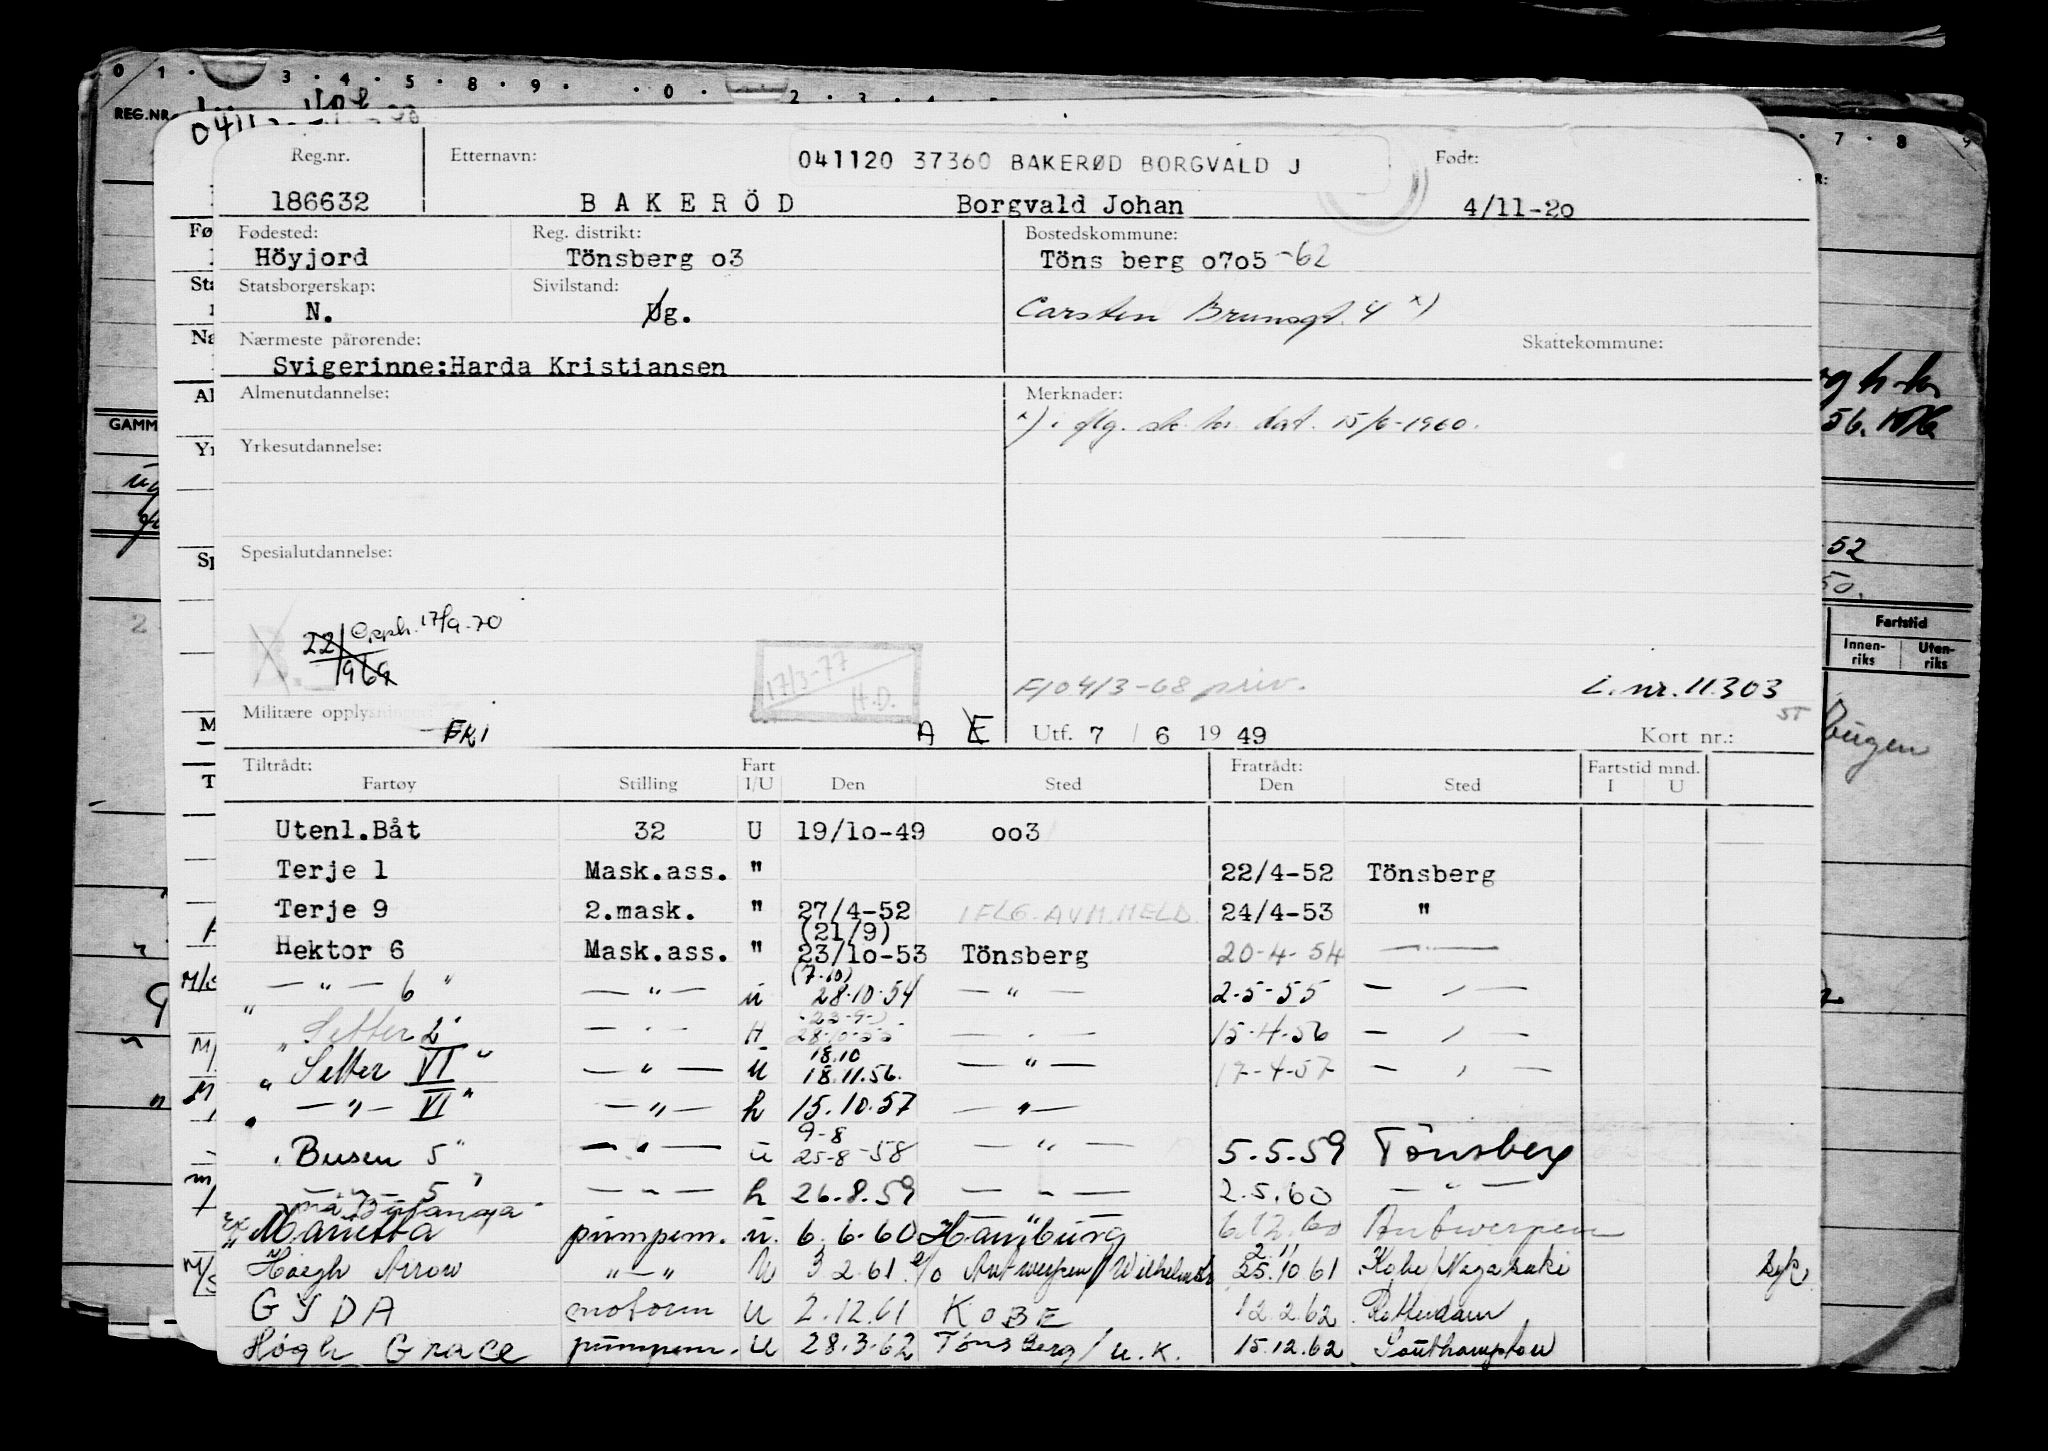 0 1 · 3 · 4 · 5 · 8 · 9 · · 0 · 2 · 3 · 4 7 · 8 9
REG.NR.
Reg.nr. Etternavn: 041120 37360 BAKERØD BORGVALD J Født:
186632 BAKERÖD Borgvald Johan 4/11-2o
Fødested: Reg. distrikt: Bostedskommune:
Höyjord Tönsberg o3 Töns berg o7o5 -62
Statsborgerskap: Sivilstand:
N. Ug. Carsten Brunsgt. 4 x)
Nærmeste pårørende: Skattekommune:
Svigerinne:Harda Kristiansen
Almenutdannelse: Merknader:
x) i flg. sk. dat. 15/6-1960.
GAMM 56.
Yrkesutdannelse:
52
Spesialutdannelse:
50.
22/ Opph. 17/9-70
1969
Fartstid
Innen-riks Uten-riks
17/3-77
H.D.
F/04/3-68 priv. L.nr. 11.303
ST
Militære opplysninger:
FRI A E Utf. 7 / 6 19 49 Kort nr.:
Tiltrådt: Fart Fratrådt: Fartstid mnd.
Fartøy Stilling I/U Den Sted Den Sted I U
Utenl.Båt 32 U 19/1o-49 oo3
Terje 1 Mask.ass. " 22/4-52 Tönsberg
Terje 9 2.mask. " 27/4-52 IFLG. AVM.MELD. 24/4-53 "
(21/9)
Hektor 6 Mask.ass. " 23/1o-53 Tönsberg 20-4-54 — " —
(7.10)
" — " — 6 " — " — u 28.10.54 — " — 2-5-55 — " —
23-9-
" Setter 2" — " — H 28-10-55 — " — 15-4-56 — " —
18.10
" Setter VI " — " — u 18.11.56. — " — 17-4-57 — " —
" — " — VI " — " — h 15.10.57 — " —
9-8
" Busen 5" — " — u 25-8-58 — " — 5.5.59 Tönsberg
— " — 5" — " — h 26.8.59 — " — 2.5.60 — " —
nå
ex "Marietta pumpem. u. 6.6.60 Hamburg 6.12.60 Antwerpen
2.11
Höegh Arrow — " — U 3 2.61 e/o Antwerpen/Wilhelmsh 25.10 61 Kobe/Nagasaki Syk.
GYDA motorm U 2.12.61 KOBE 12 2.62 Rotterdam
Högh Grace pumpem. U 28.3.62 Tönsberg/u.K. 15.12.62 Southampton